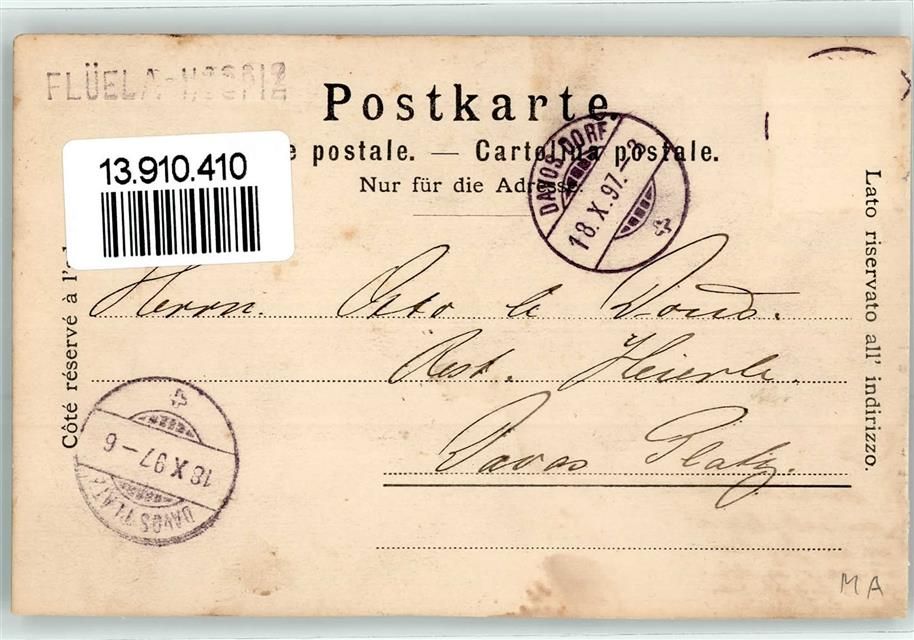 FLÜELA-HOSPIZ
Postkarte
e postale. — Cartolina postale.
Nur für die Adresse.
13.910.410
DAVOS DORF
18.X.97.-8
Côté réservé à l'a
Lato riservato all' indirizzo.
Herrn. Otto
Rest. Heierle.
Davos Platz.
18 X 97-6
DAVOS PLATZ
MA